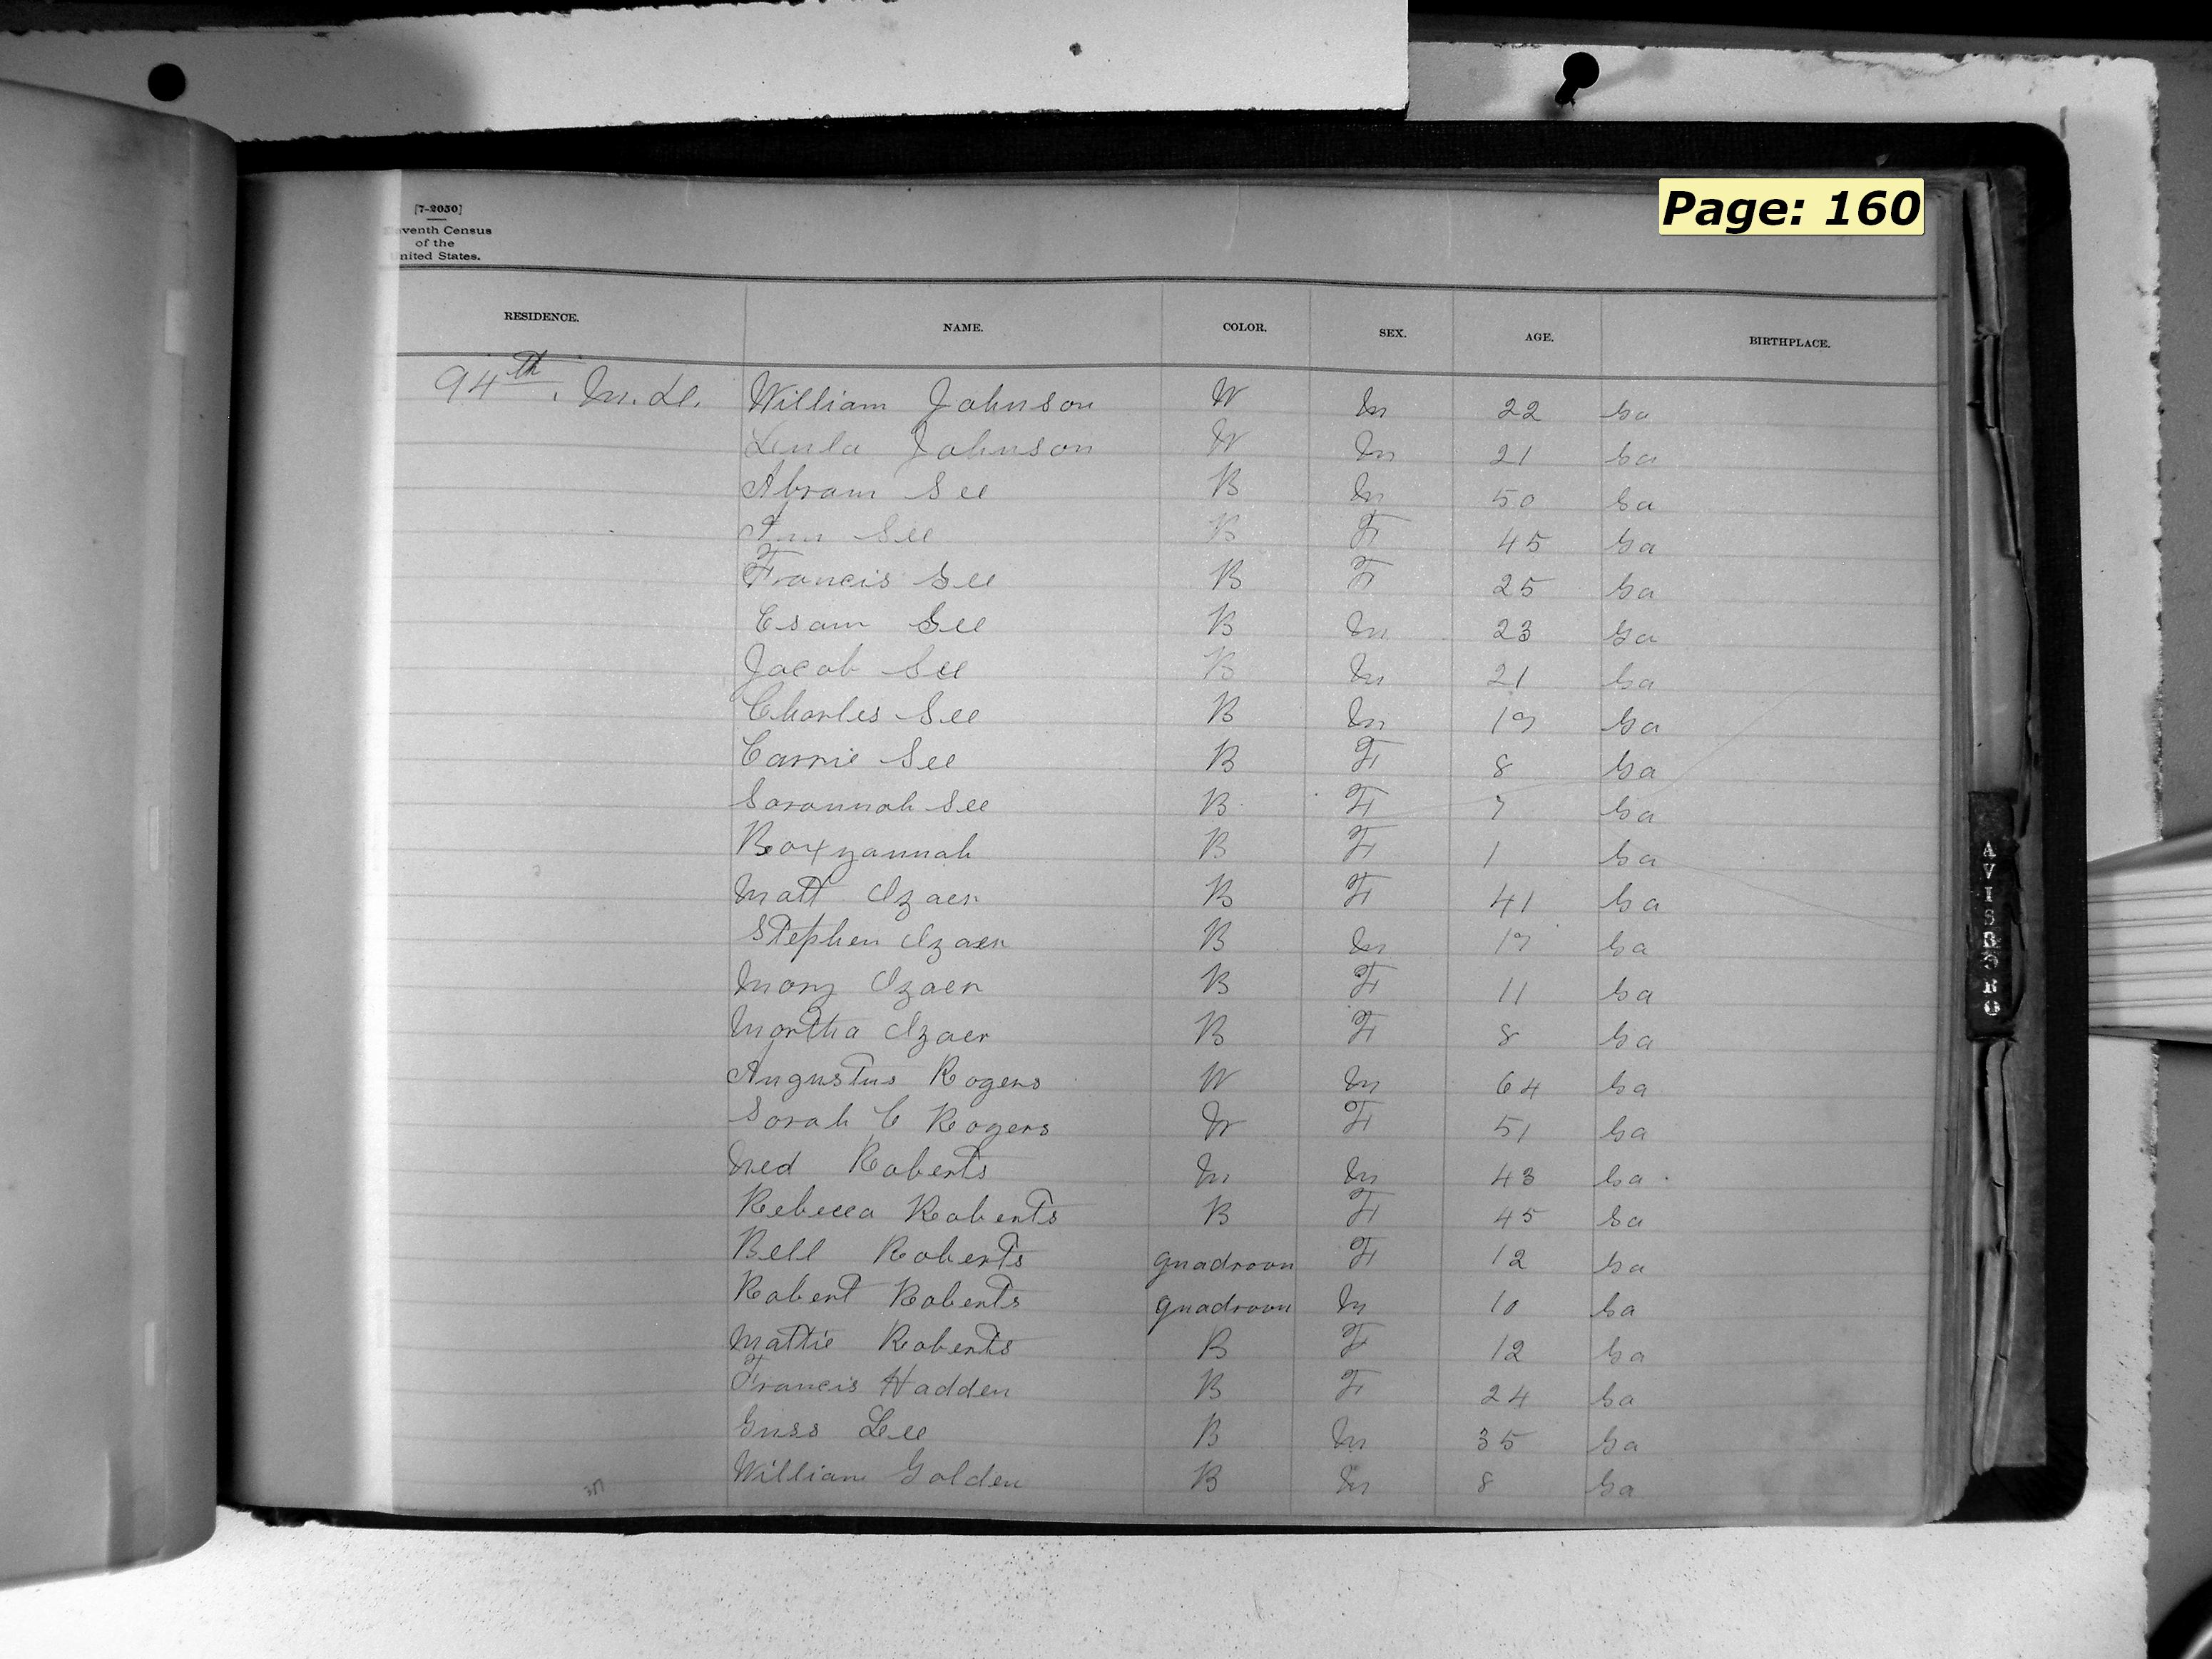 Page: 160
[7-2050]
eventh Census
of the
United States.
RESIDENCE. NAME. COLOR. SEX. AGE. BIRTHPLACE.
94th. M. D. William Johnson W M 22 Ga
Leula Johnson W M 21 Ga
Abram See B M 50 Ga
Ann See B F 45 Ga
Francis See B F 25 Ga
Esam See B M 23 Ga
Jacob See B M 21 Ga
Charles See B M 19 Ga
Carrie See B F 8 Ga
Savannah See B F 7 Ga
B F 1 Ga
Matt Izaer B F 41 Ga
Stephen Izaer B M Ga
Mary Izaer B F 11 Ga
Martha Izaer B F 8 Ga
Augustus Rogers W M 64 Ga
Sarah C Rogers W F 51 Ga
Ned Roberts M M 43 Ga
Rebecca Roberts B F 45 Ga
Bell Roberts quadroon F 12 Ga
Robert Roberts quadroon M 10 Ga
Mattie Roberts B F 12 Ga
Francis Hadden B F 24 Ga
Guss Lee B M 35 Ga
William Golden B M 8 Ga
AVISBORO